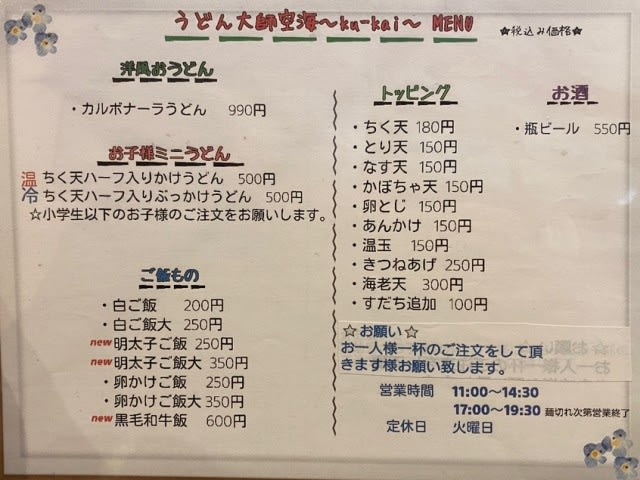 うどん大師空海～ku-kai～ MENU
★税込み価格★
洋風おうどん
・カルボナーラうどん 990円
お子様ミニうどん
温 ちく天ハーフ入りかけうどん 500円
冷 ちく天ハーフ入りぶっかけうどん 500円
☆小学生以下のお子様のご注文をお願いします。
ご飯もの
・白ご飯 200円
・白ご飯大 250円
new 明太子ご飯 250円
new 明太子ご飯大 350円
・卵かけご飯 250円
・卵かけご飯大 350円
new 黒毛和牛飯 600円
トッピング
・ちく天 180円
・とり天 150円
・なす天 150円
・かぼちゃ天 150円
・卵とじ 150円
・あんかけ 150円
・温玉 150円
・きつねあげ 250円
・海老天 300円
・すだち追加 100円
お酒
・瓶ビール 550円
☆お願い☆
お一人様一杯のご注文をして頂
きます様お願い致します。
営業時間 11:00～14:30
17:00～19:30 麺切れ次第営業終了
定休日 火曜日